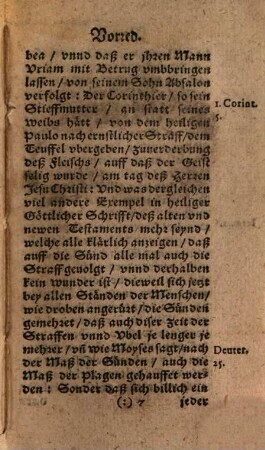 Vorred.
bea / vnnd daß er jhren Mann
Vriam mit Betrug vmbbringen
lassen / von seinem Sohn Absalon
verfolgt : Der Corinthier / so sein
Stieffmutter / an statt seines
Weibs hätt / von dem heiligen
Paulo nach ernstlicher Straff / dem
Teuffel vbergeben / zuuerderbung
deß Fleischs / auff daß der Geist
selig wurde / am tag deß HERRN
Jesu Christi : Vnd was dergleichen
viel andere Exempel in heiliger
Göttlicher Schrifft / deß alten vnd
newen Testaments mehr seynd /
welche alle klärlich anzeigen / daß
auff die Sünd alle mal auch die
Straff geuolgt / vnnd derhalben
kein wunder ist / dieweil sich jetzt
bey allen Ständen der Menschen /
wie droben angerürt / die Sünden
gemehret / daß auch diser zeit der
Straffen vnnd Vbel je lenger je
mehrer / vñ wie Moyses sagt / nach
der Maß der Sünden / auch die
Maß der Plagen gehauffet wer-
den : Sonder daß sich billich ein
(:) 7 jeder
1. Corint.
5.
Deuter.
25.